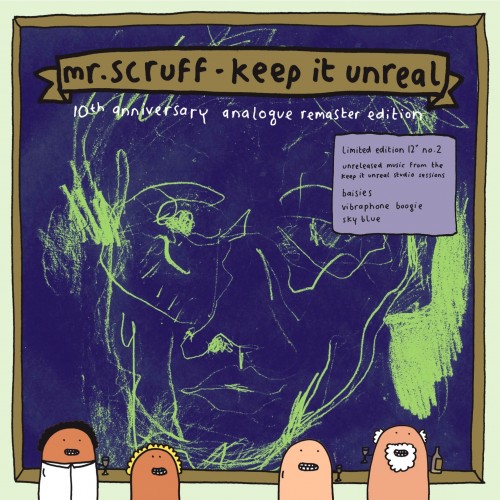 mr.scruff - keep it unreal
10th anniversary analogue remaster edition
Limited edition 12" no.2
unreleased music from the
keep it unreal studio sessions
baisies
vibraphone boogie
sky blue